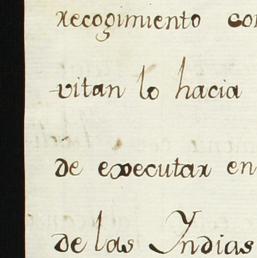 recogimiento con
vitan lo hacia
de executar en
de las Indias